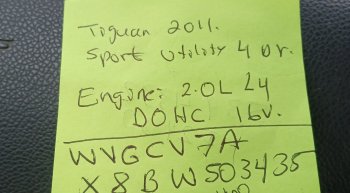 Tiguan 2011.
Sport Utility 4 Dr.
Engine: 2.0L L4
DOHC 16V.
WVGCV7A
X8BW503435